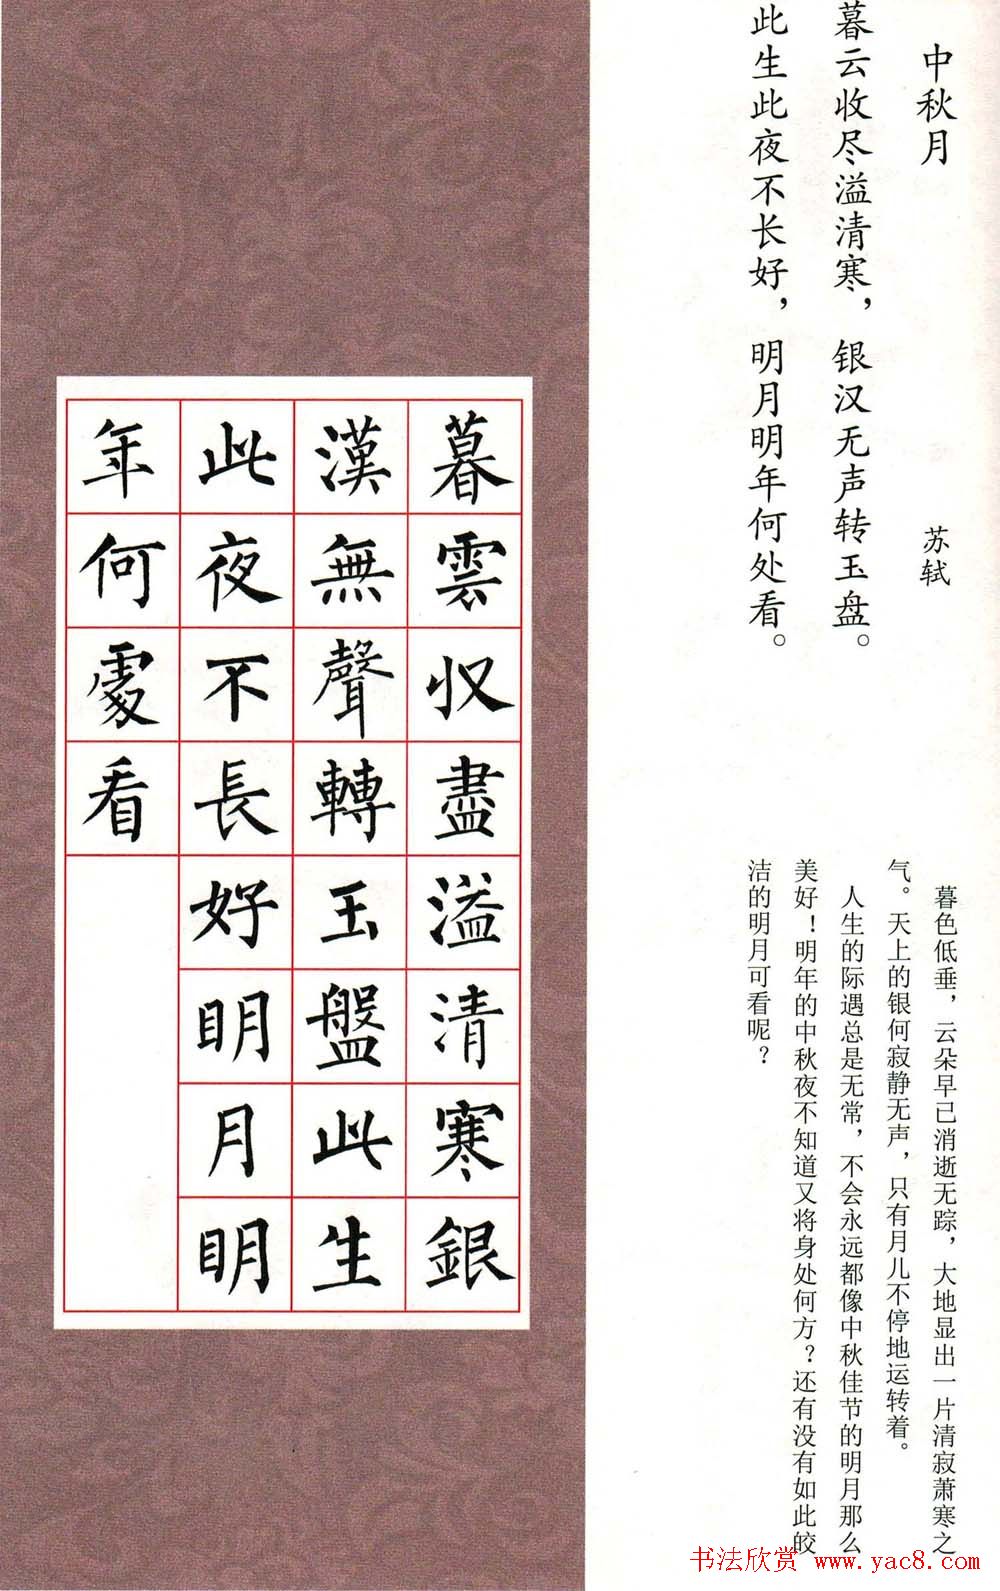 中秋月
苏轼
暮云收尽溢清寒，银汉无声转玉盘。
此生此夜不长好，明月明年何处看。
暮色低垂，云朵早已消逝无踪，大地显出一片清寂萧寒之
气。天上的银何寂静无声，只有月儿不停地运转着。
人生的际遇总是无常，不会永远都像中秋佳节的明月那么
美好！明年的中秋夜不知道又将身处何方？还有没有如此皎
洁的明月可看呢？
暮雲収盡溢清寒銀
漢無聲轉玉盤此生
此夜不長好明月明
年何處看
书法欣赏 www.yac8.com